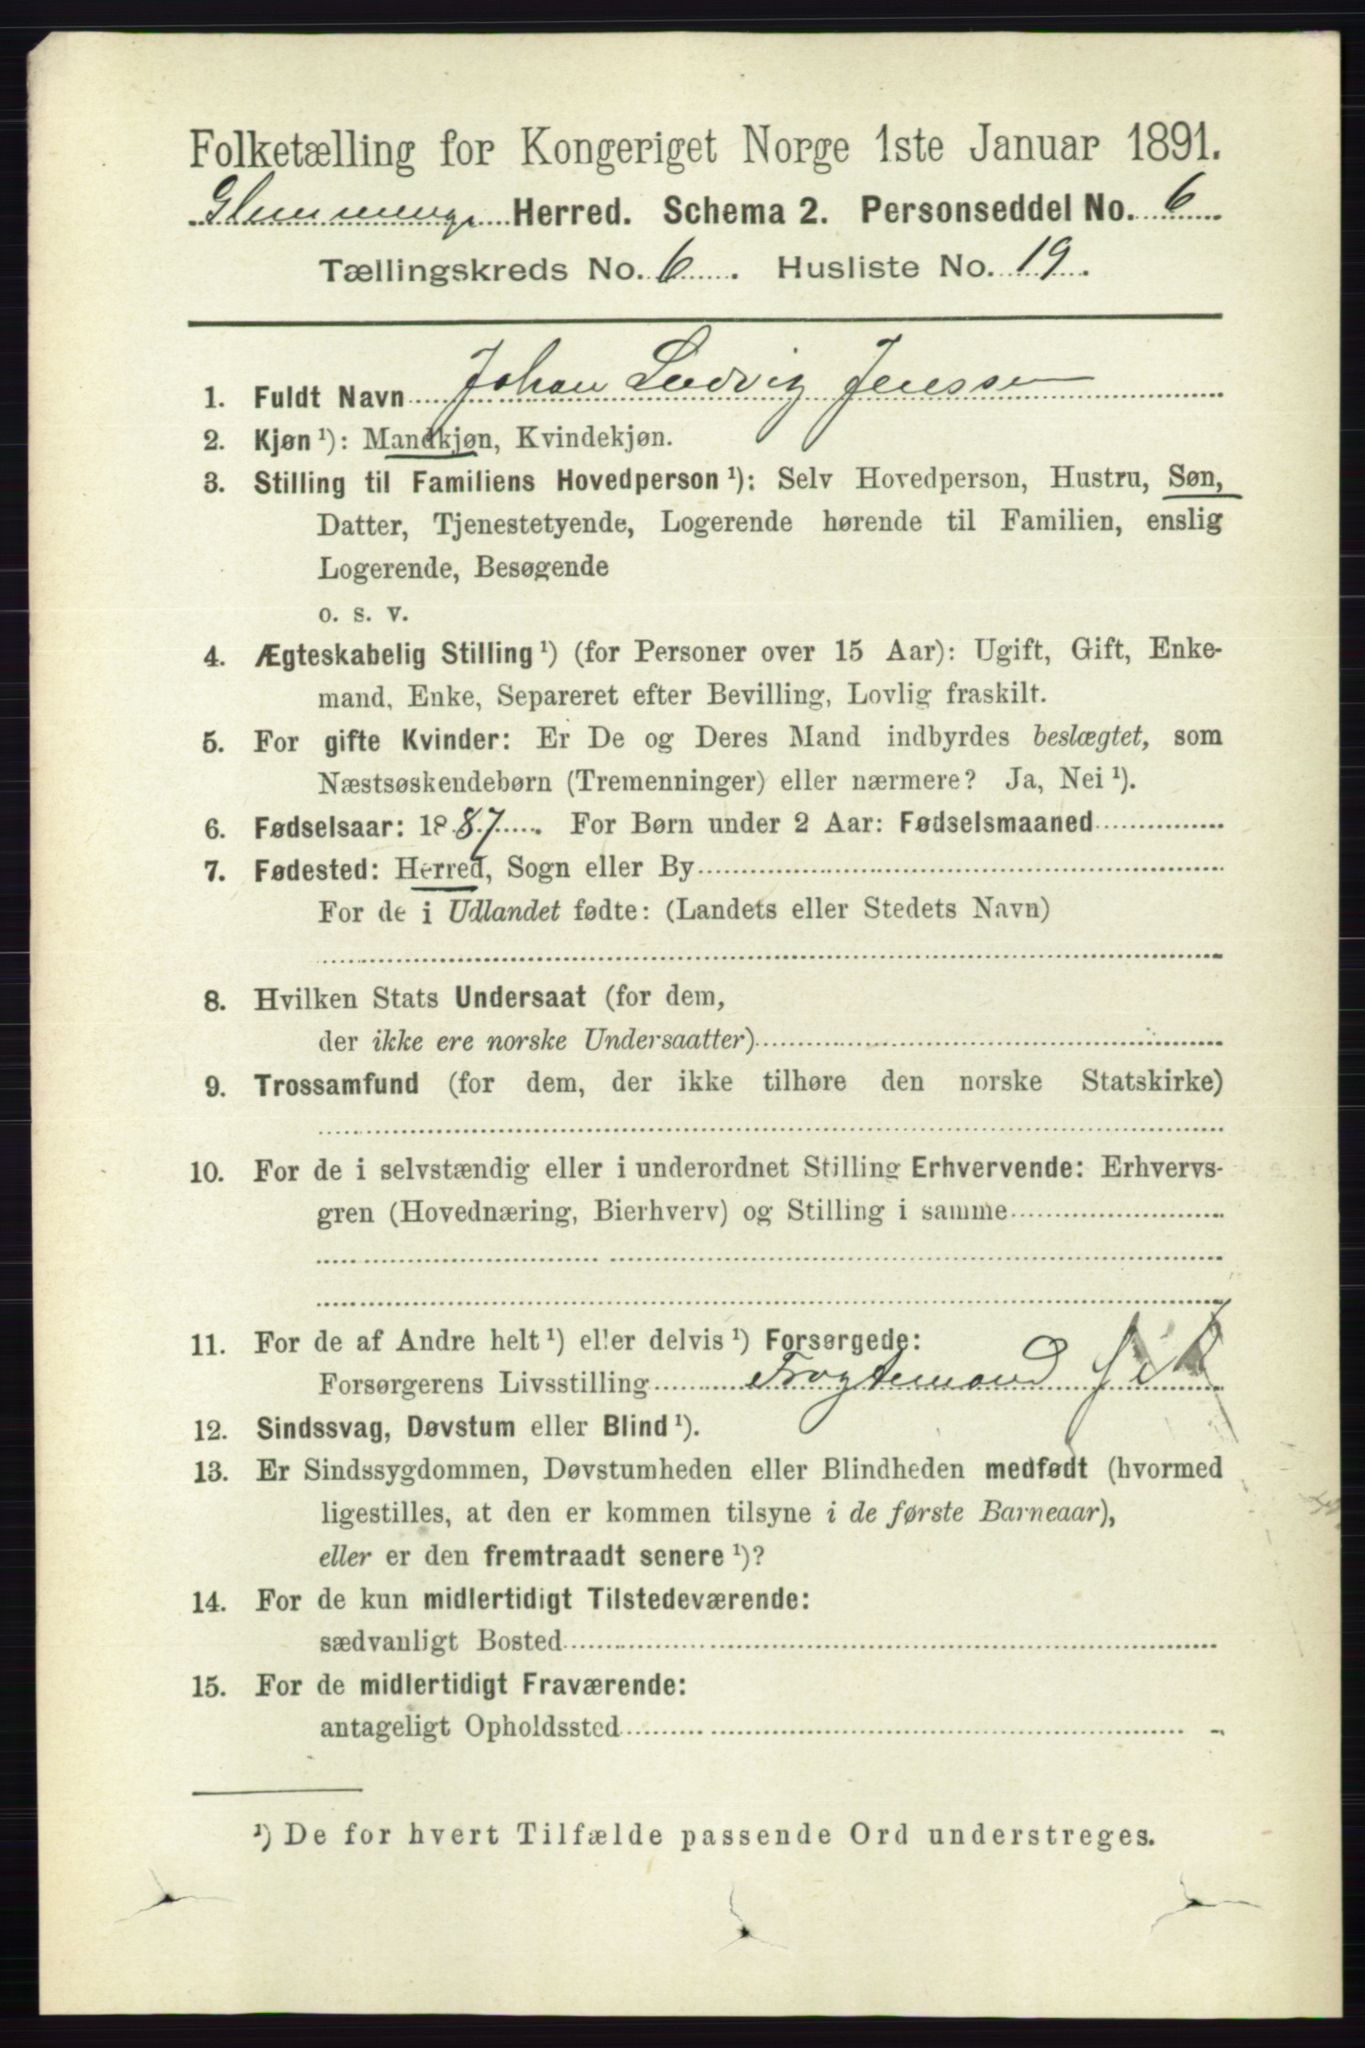 Folketælling for Kongeriget Norge 1ste Januar 1891.
Glemminge Herred. Schema 2. Personseddel No. 6
Tællingskreds No. 6. Husliste No. 19.
1. Fuldt Navn Johan Ludvig Jenssen
2. Kjøn ¹): Mandkjøn, Kvindekjøn.
3. Stilling til Familiens Hovedperson ¹): Selv Hovedperson, Hustru, Søn,
Datter, Tjenestetyende, Logerende hørende til Familien, enslig
Logerende, Besøgende
o. s. v.
4. Ægteskabelig Stilling ¹) (for Personer over 15 Aar): Ugift, Gift, Enke-
mand, Enke, Separeret efter Bevilling, Lovlig fraskilt.
5. For gifte Kvinder: Er De og Deres Mand indbyrdes beslægtet, som
Næstsøskendebørn (Tremenninger) eller nærmere? Ja, Nei ¹).
6. Fødselsaar: 1887. For Børn under 2 Aar: Fødselsmaaned
7. Fødested: Herred, Sogn eller By
For de i Udlandet fødte: (Landets eller Stedets Navn)
8. Hvilken Stats Undersaat (for dem,
der ikke ere norske Undersaatter)
9. Trossamfund (for dem, der ikke tilhøre den norske Statskirke)
10. For de i selvstændig eller i underordnet Stilling Erhvervende: Erhvervs-
gren (Hovednæring, Bierhverv) og Stilling i samme
11. For de af Andre helt ¹) eller delvis ¹) Forsørgede:
Forsørgerens Livsstilling Fragtemand
12. Sindssvag, Døvstum eller Blind ¹).
13. Er Sindssygdommen, Døvstumheden eller Blindheden medfødt (hvormed
ligestilles, at den er kommen tilsyne i de første Barneaar),
eller er den fremtraadt senere ¹)?
14. For de kun midlertidigt Tilstedeværende:
sædvanligt Bosted
15. For de midlertidigt Fraværende:
antageligt Opholdssted
¹) De for hvert Tilfælde passende Ord understreges.